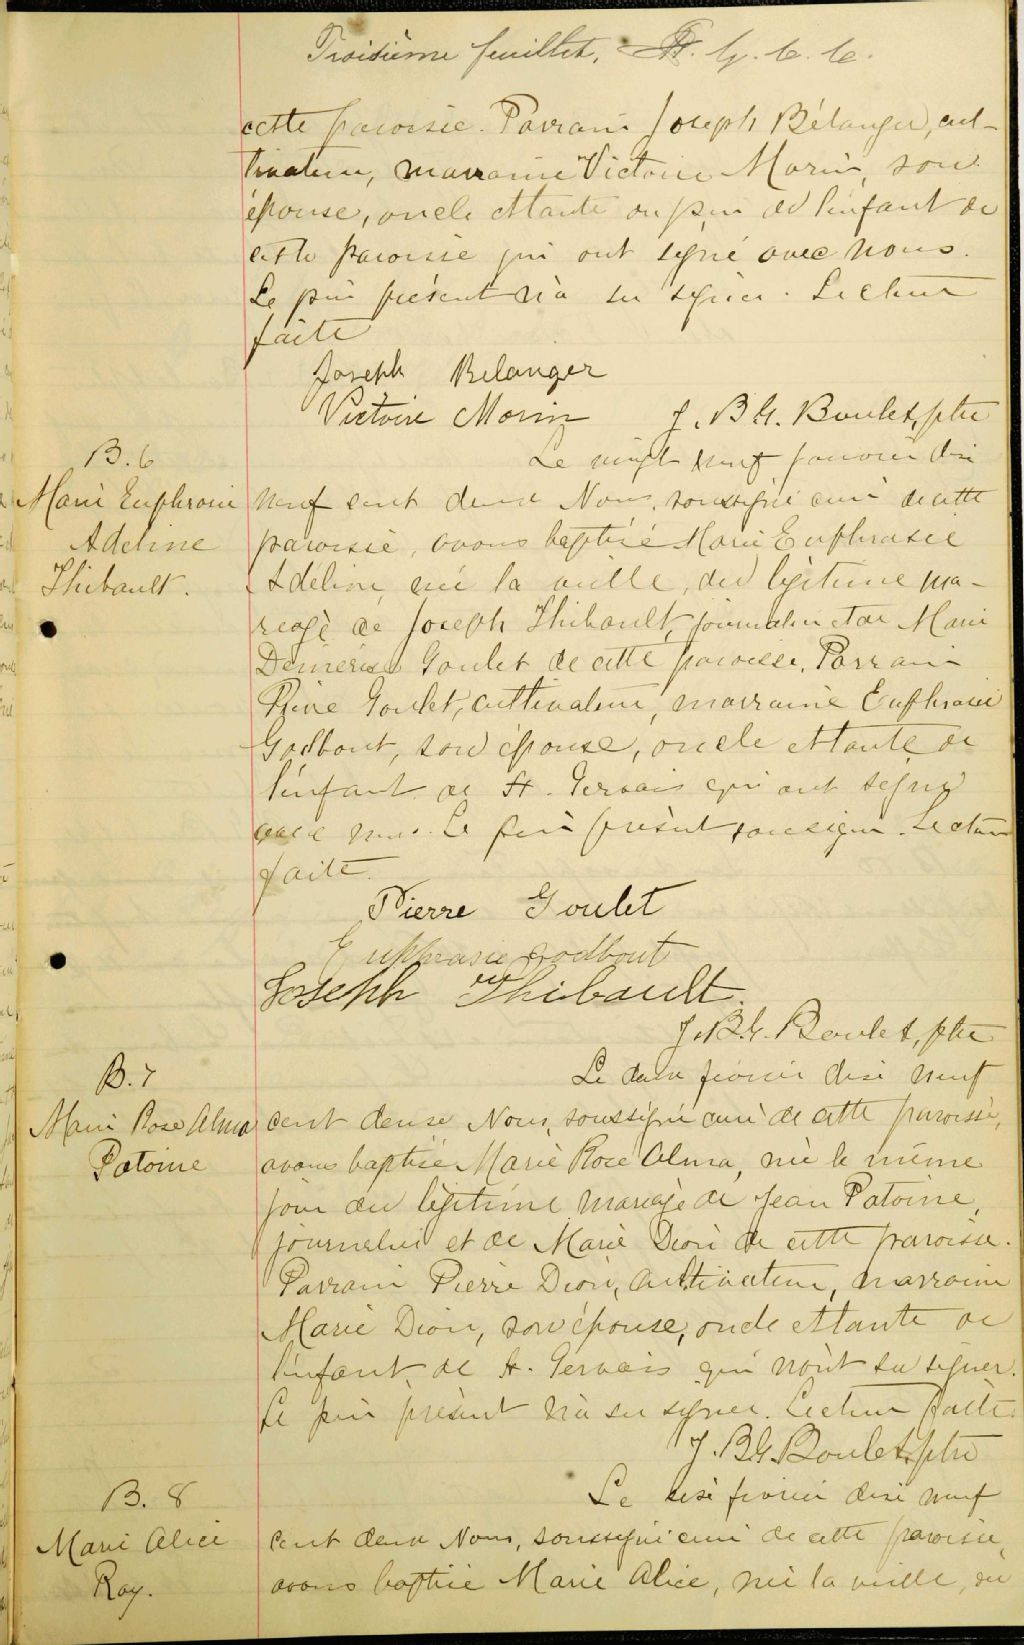 Troisième feuillet. G. C. C.
cette paroisse. Parrain Joseph Bélanger, cul-
tivateur, marraine Victoire Morin, son
épouse, oncle et tante du père de l'enfant de
cette paroisse qui ont signé avec nous.
Le père présent n'a su signer. Lecture
faite
Joseph Belanger
Victoire Morin J. B. G. Boulet, ptre
B. 6
Marie Euphrasie
Adeline
Thibault.
Le vingt neuf janvier dix
neuf cent deux Nous, soussigné curé de cette
paroisse, avons baptisé Marie Euphrasie
Adeline, née la veille, du légitime ma-
riage de Joseph Thibault, journalier et de Marie
Goulet de cette paroisse. Parrain
Pierre Goulet, cultivateur, marraine Euphrasie
Godbout, son épouse, oncle et tante de
l'enfant de St. Gervais qui ont signé
avec nous. Le père présent a signé. Lecture
faite.
Pierre Goulet
Euphrasie Godbout
Joseph Thibault.
J. B. G. Boulet, ptre
B. 7
Marie Rose Alma
Patoine
Le deux février dix neuf
cent deux Nous, soussigné curé de cette paroisse,
avons baptisé Marie Rose Alma, née le même
jour du légitime mariage de Jean Patoine,
journalier et de Marie Dion de cette paroisse.
Parrain Pierre Dion, cultivateur, marraine
Marie Dion, son épouse, oncle et tante de
l'enfant, de St. Gervais qui n'ont su signer.
Le père présent n'a su signer. Lecture faite
J. B. G. Boulet, ptre
B. 8
Marie Alice
Roy.
Le six février dix neuf
cent deux Nous, soussigné curé de cette paroisse,
avons baptisé Marie Alice, née la veille, du